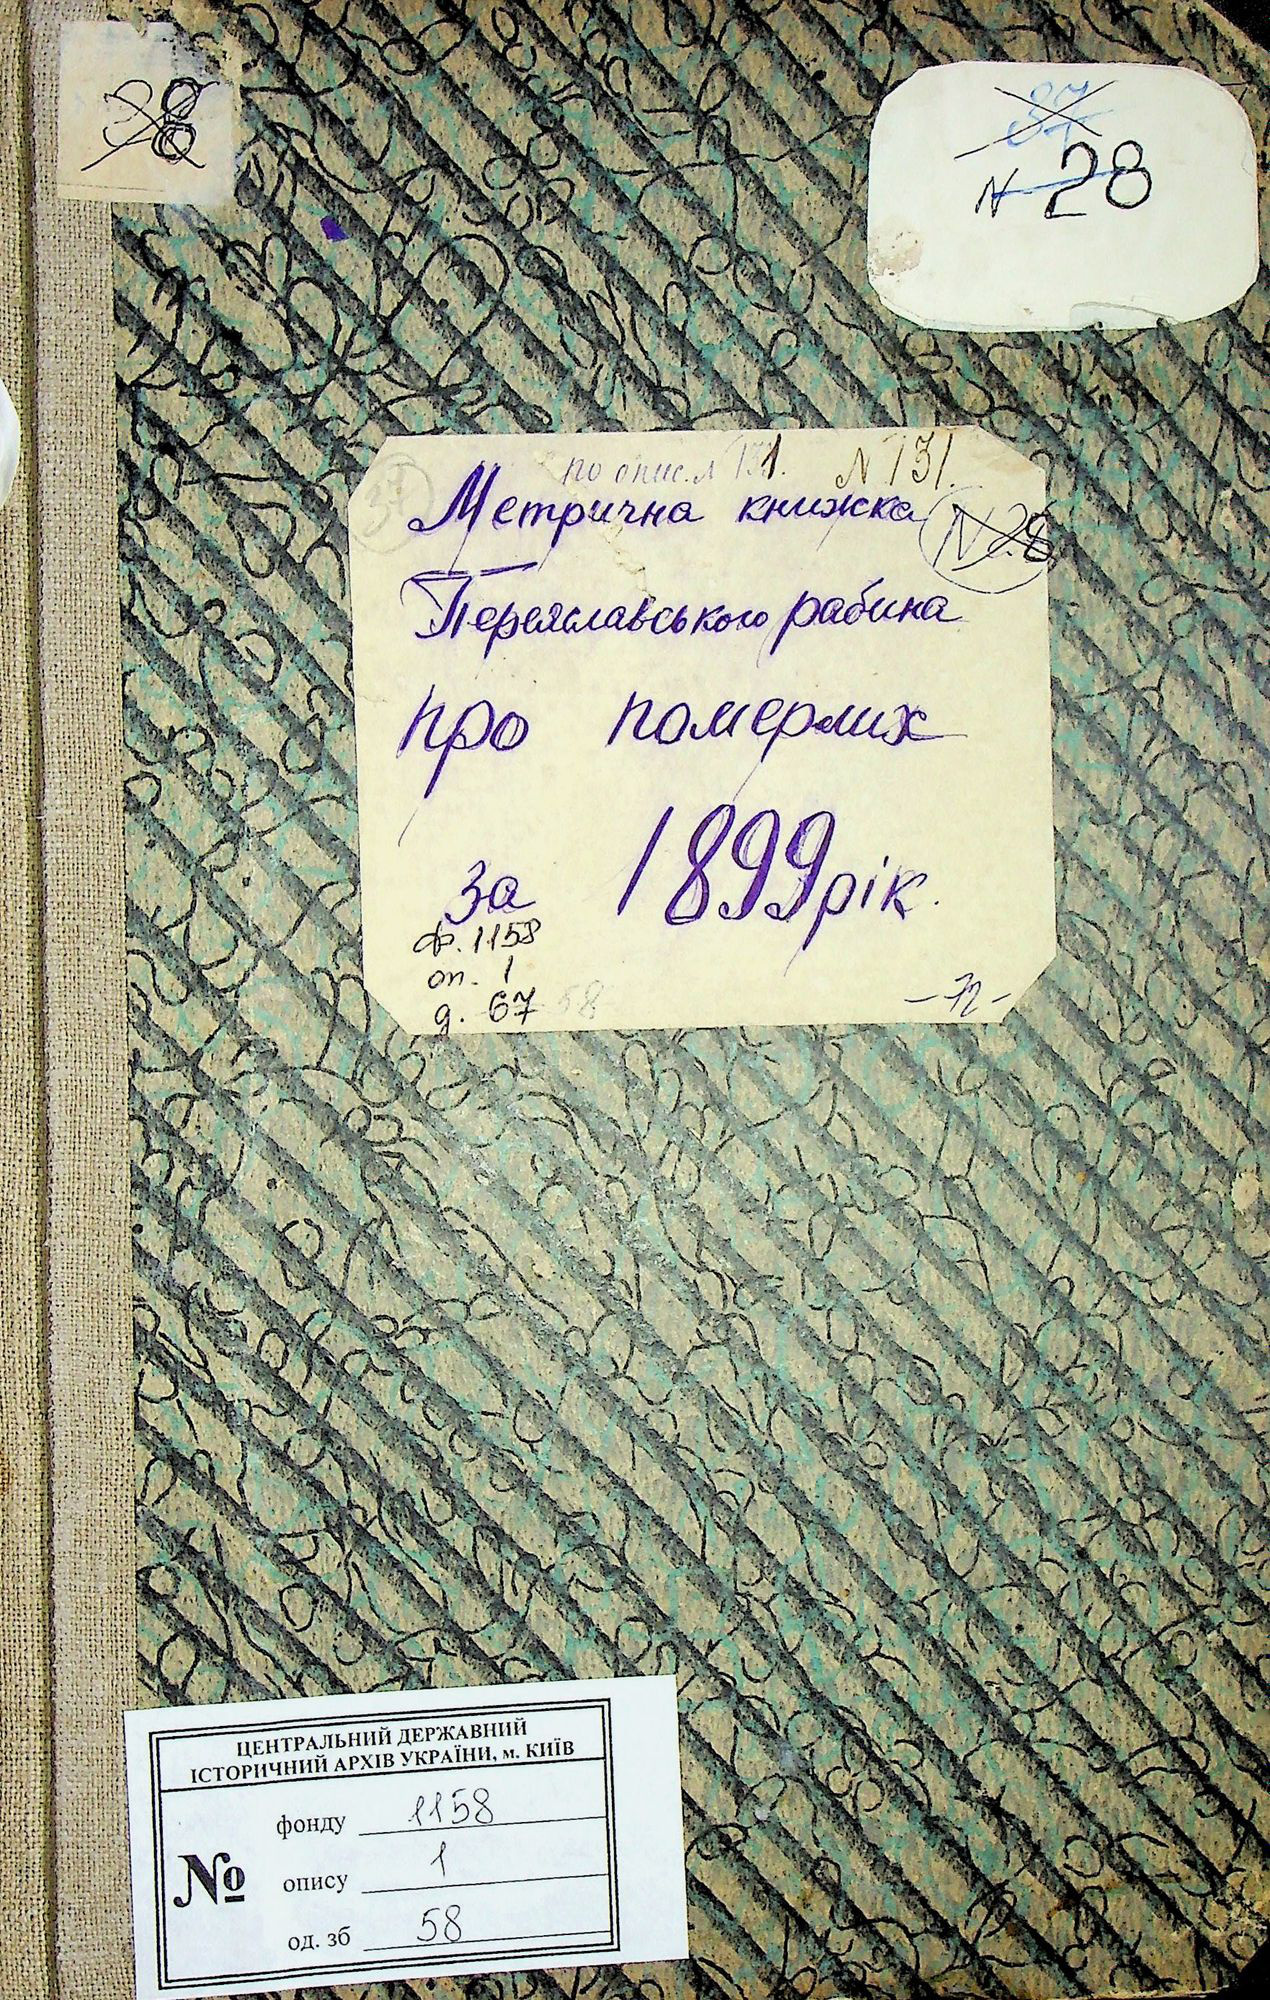 38
37
N 28
по опис. N 131.
N 131.
37
Метрична книжка
N 28
Переяславського рабина
про померлих
за 1899 рік.
ф. 1158
оп. 1
д. 67 58
ЦЕНТРАЛЬНИЙ ДЕРЖАВНИЙ
ІСТОРИЧНИЙ АРХІВ УКРАЇНИ, м. КИЇВ
№
фонду 1158
опису 1
од. зб 58